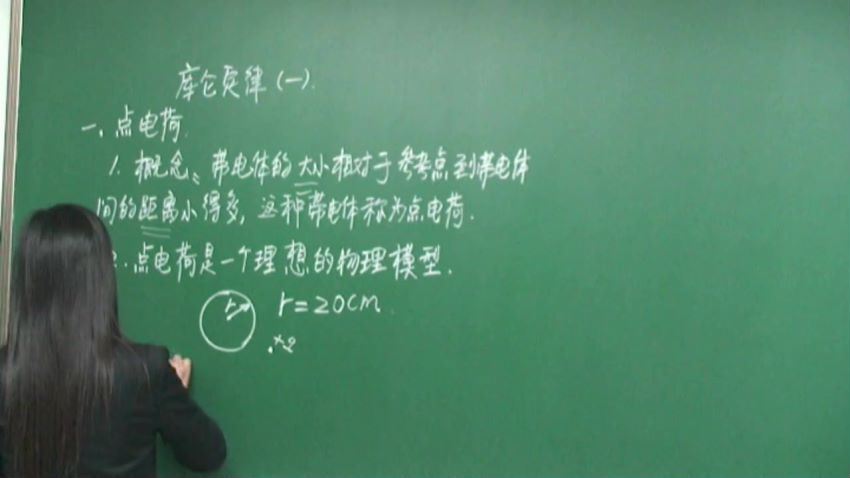 库仑定律(一).
一、点电荷.
1. 概念: 带电体的大小相对于参考点到带电体
间的距离小得多, 这种带电体称为点电荷.
2. 点电荷是一个理想的物理模型.
r r=20cm.